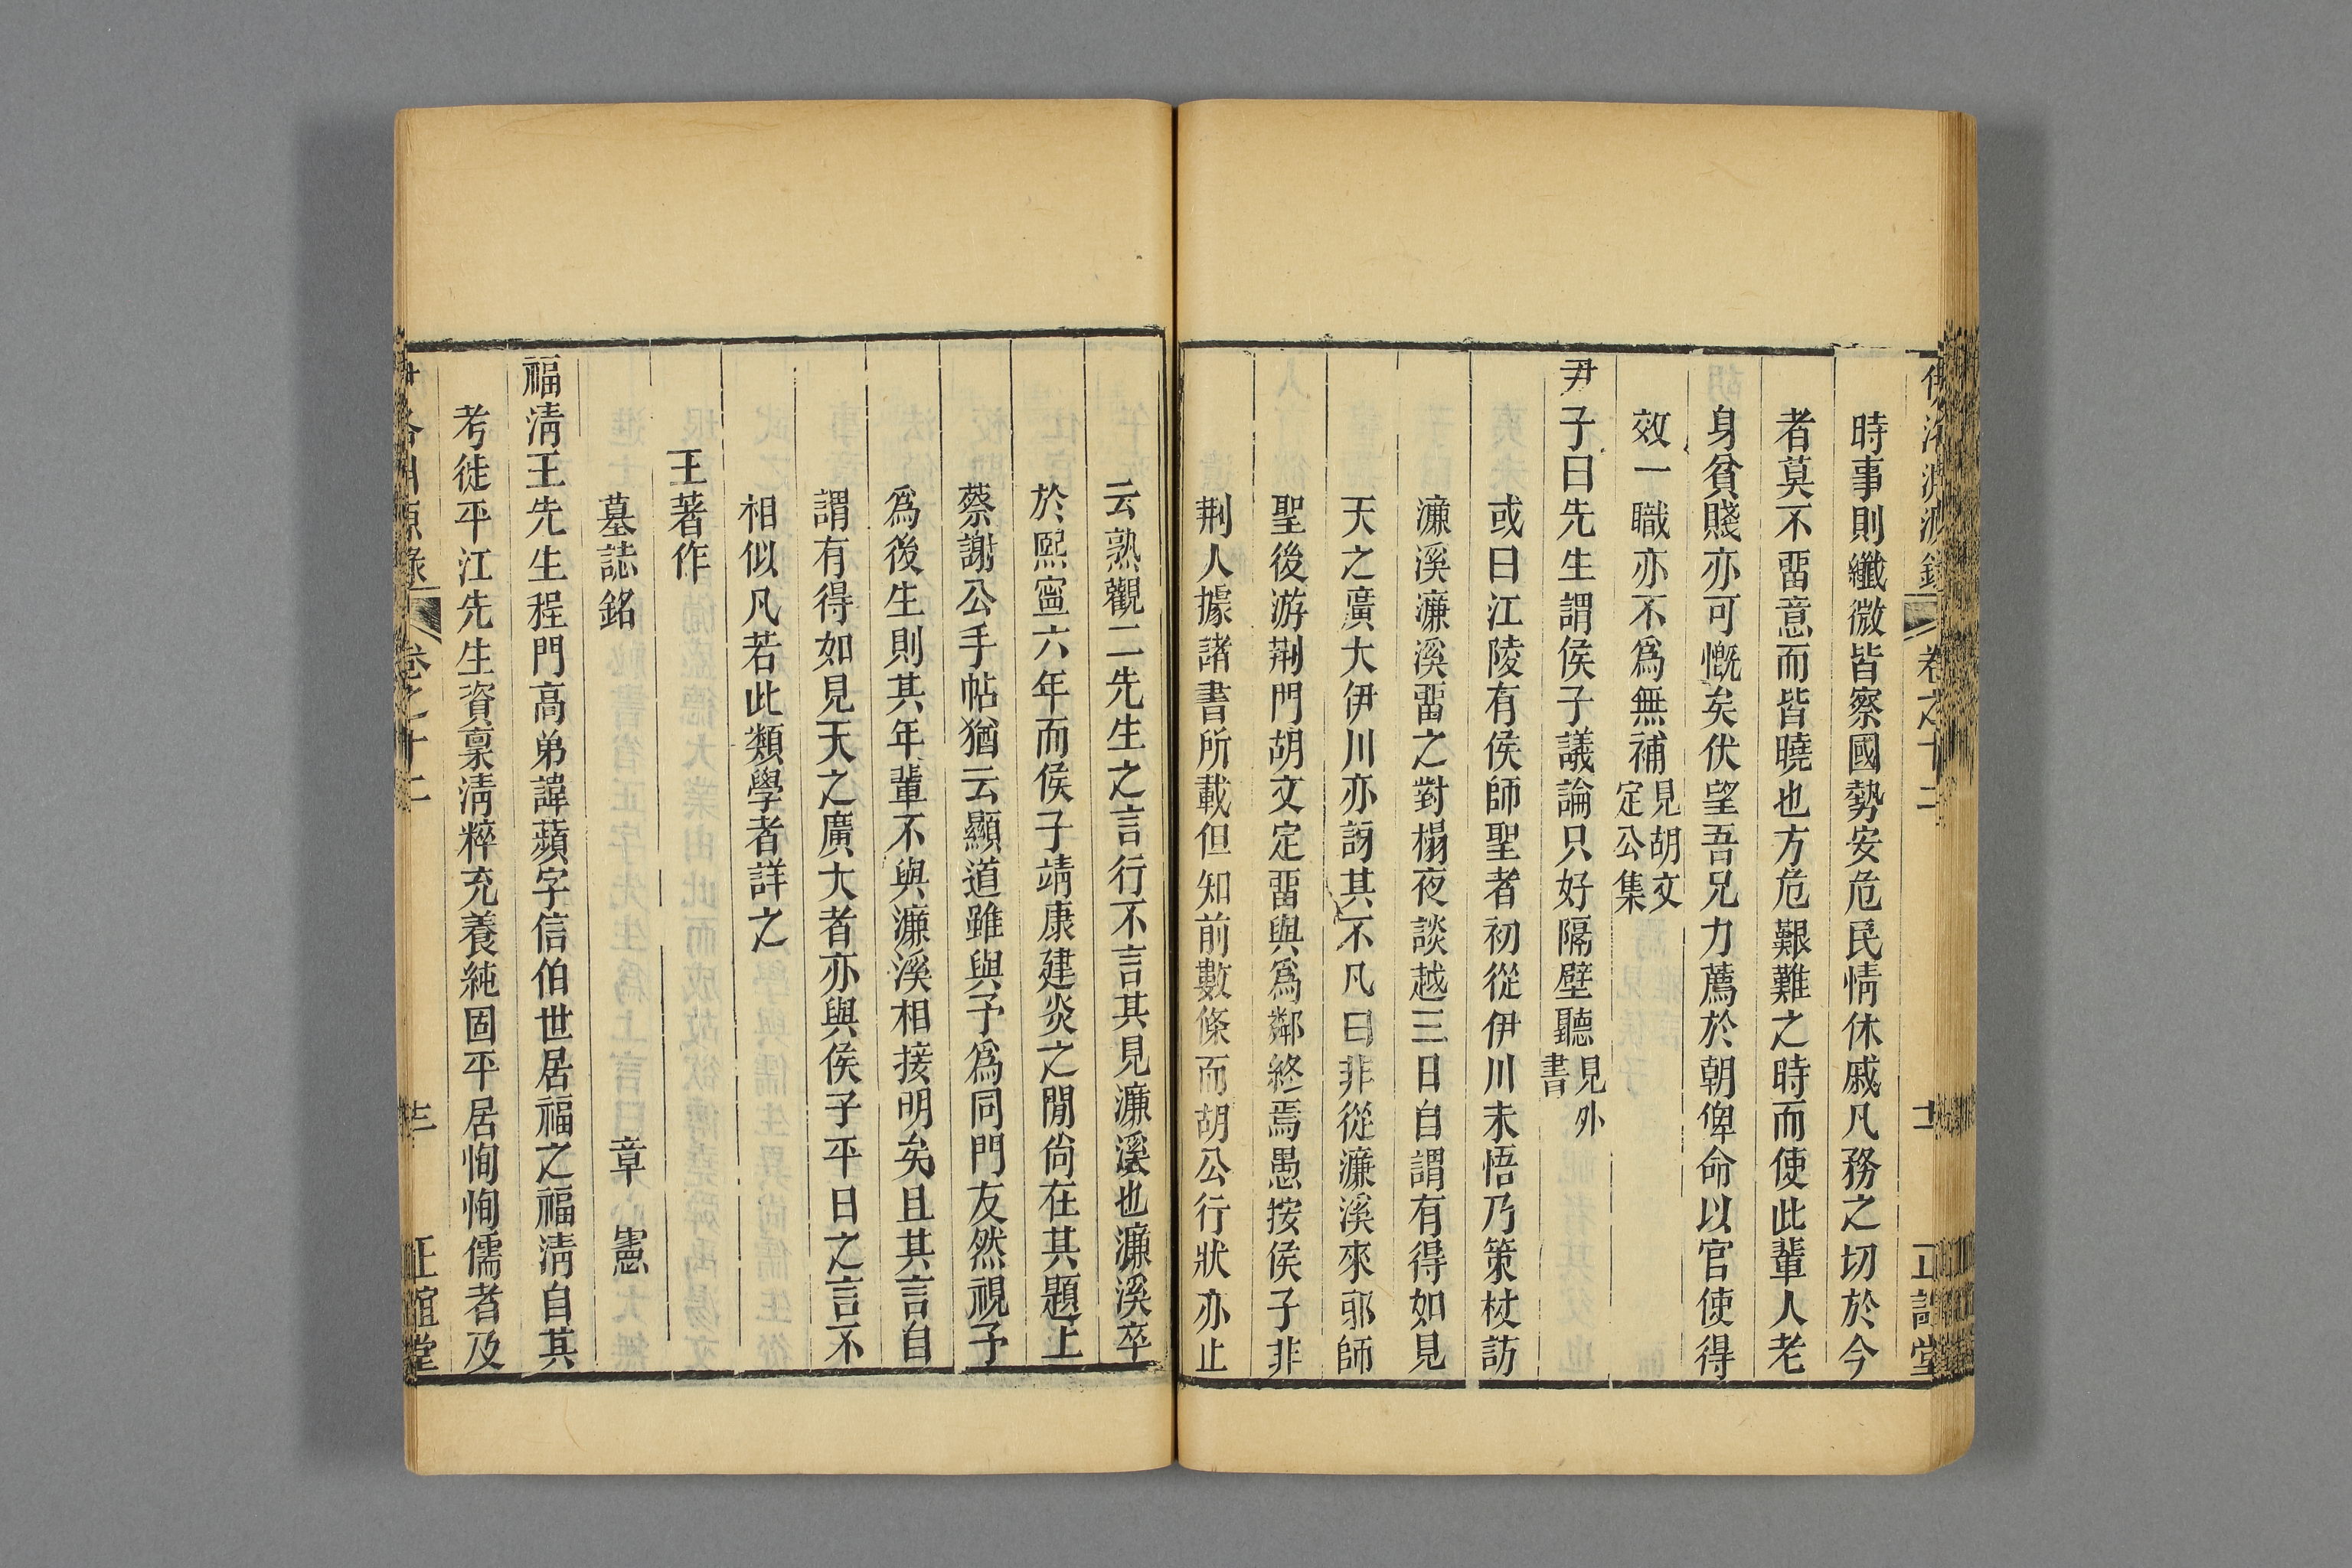 伊洛淵源錄 卷之十二 十二 正誼堂
時事則纖微皆察國勢安危民情休戚凡務之切於今
者莫不畱意而皆曉也方危艱難之時而使此輩人老
身貧賤亦可慨矣伏望吾兄力薦於朝俾命以官使得
效一職亦不爲無補見胡文定公集
尹子曰先生謂侯子議論只好隔壁聽見外書
或曰江陵有侯師聖者初從伊川未悟乃策杖訪
濂溪濂溪畱之對榻夜談越三日自謂有得如見
天之廣大伊川亦訝其不凡曰非從濂溪來邪師
聖後游荆門胡文定畱與爲鄰終焉愚按侯子非
荆人據諸書所載但知前數條而胡公行狀亦止
云熟觀二先生之言行不言其見濂溪也濂溪卒
於熙寧六年而侯子靖康建炎之閒尙在其題上
蔡謝公手帖猶云顯道雖與予爲同門友然視予
爲後生則其年輩不與濂溪相接明矣且其言自
謂有得如見天之廣大者亦與侯子平日之言不
相似凡若此類學者詳之
王著作
墓誌銘 章憲
福淸王先生程門高弟諱蘋字信伯世居福之福淸自其
考徙平江先生資稟淸粹充養純固平居恂恂儒者及
洛淵源錄 卷之十二 十三 正誼堂